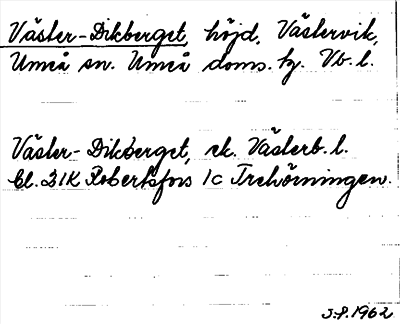 Väster-Dikberget, höjd, Västervik,
Umeå sn. Umeå doms. hg. Vb. l.
Väster-Dikberget, ek. Västerb. l.
bl. 21K Robertsfors 1c Trehörningen.
J.P. 1962